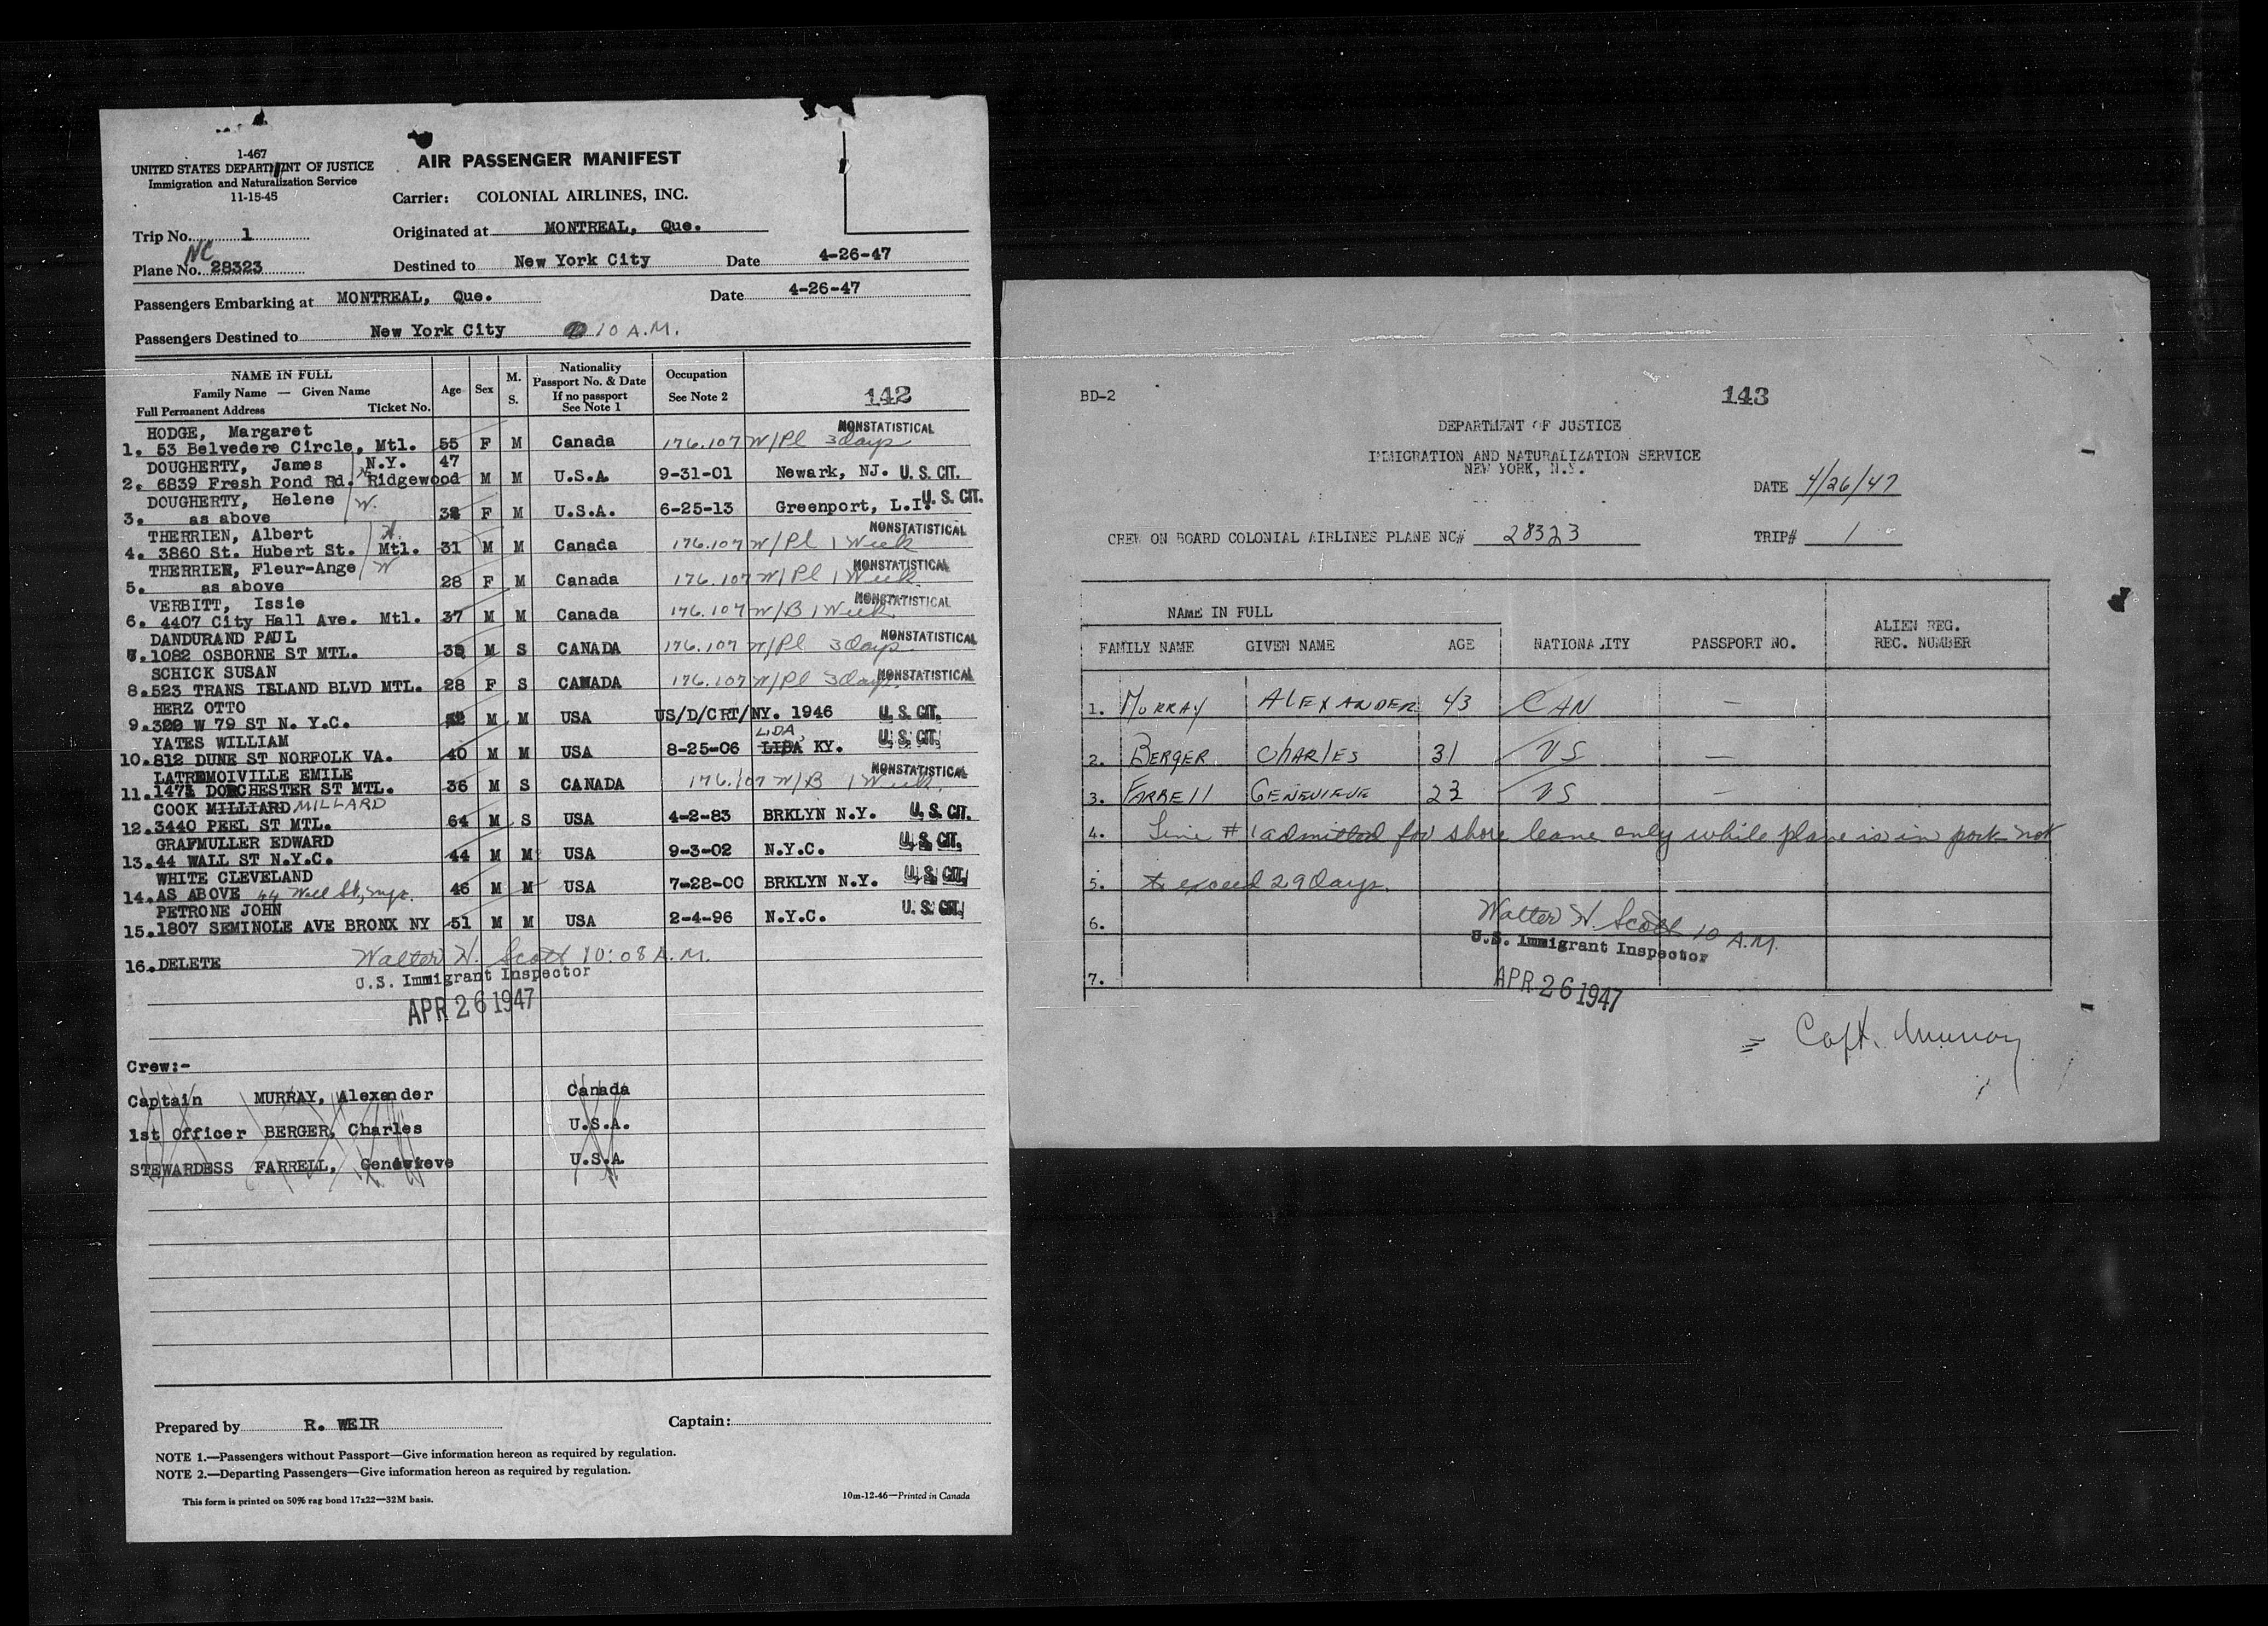 1-467
UNITED STATES DEPARTMENT OF JUSTICE
Immigration and Naturalization Service
11-15-45
AIR PASSENGER MANIFEST
Carrier: COLONIAL AIRLINES, INC.
Trip No. 1
Originated at MONTREAL, Que.
NC
Plane No. 28323
Destined to New York City Date 4-26-47
Passengers Embarking at MONTREAL, Que. Date 4-26-47
Passengers Destined to New York City 10 A.M.
NAME IN FULL
Family Name — Given Name
Full Permanent Address Ticket No.
Age
Sex
M.
S.
Nationality
Passport No. & Date
If no passport
See Note 1
Occupation
See Note 2
142
HODGE, Margaret NONSTATISTICAL
1. 53 Belvedere Circle, Mtl. 55 F M Canada 176.107 W/Pl 3 days
DOUGHERTY, James N.Y. 47
2. 6839 Fresh Pond Rd. Ridgewood M M U.S.A. 9-31-01 Newark, NJ. U.S. CIT.
DOUGHERTY, Helene W.
3. as above F M U.S.A. 6-25-13 Greenport, L.I. U.S. CIT.
THERRIEN, Albert H. NONSTATISTICAL
4. 3860 St. Hubert St. Mtl. 31 M M Canada 176.107 W/Pl 1 Week
THERRIEN, Fleur-Ange W NONSTATISTICAL
5. as above 28 F M Canada 176.107 W/Pl 1 Week
VERBITT, Issie NONSTATISTICAL
6. 4407 City Hall Ave. Mtl. 37 M M Canada 176.107 W/B 1 Week
DANDURAND PAUL NONSTATISTICAL
7. 1082 OSBORNE ST MTL. M S CANADA 176.107 W/Pl 3 days
SCHICK SUSAN NONSTATISTICAL
8. 523 TRANS ISLAND BLVD MTL. 28 F S CANADA 176.107 W/Pl 3 days
HERZ OTTO
9. W 79 ST N. Y.C. M M USA US/D/CRT/NY. 1946 U.S. CIT.
YATES WILLIAM LIDA,
10. 812 DUNE ST NORFOLK VA. 40 M M USA 8-25-06 LIBA KY. U.S. CIT.
LATREMOIVILLE EMILE NONSTATISTICAL
11. DORCHESTER ST MTL. 36 M S CANADA 176.107 W/B 1 Week
COOK MILLIARD MILLARD
12. 3440 PEEL ST MTL. 64 M S USA 4-2-83 BRKLYN N.Y. U.S. CIT.
GRAFMULLER EDWARD
13. 44 WALL ST N.Y.C. 44 M M USA 9-3-02 N.Y.C. U.S. CIT.
WHITE CLEVELAND
14. AS ABOVE 44 Wall St, nyc. 46 M M USA 7-28-00 BRKLYN N.Y. U.S. CIT.
PETRONE JOHN
15. 1807 SEMINOLE AVE BRONX NY 51 M M USA 2-4-96 N.Y.C. U.S. CIT.
16. DELETE
Walter H. Scott 10:08 A.M.
U.S. Immigrant Inspector
APR 26 1947
Crew:-
Captain MURRAY, Alexander Canada
1st Officer BERGER, Charles U.S.A.
STEWARDESS FARRELL, Genevieve U.S.A.
Prepared by R. WEIR Captain:
NOTE 1.—Passengers without Passport—Give information hereon as required by regulation.
NOTE 2.—Departing Passengers—Give information hereon as required by regulation.
This form is printed on 50% rag bond 17x22—32M basis. 10m-12-46—Printed in Canada
BD-2
143
DEPARTMENT OF JUSTICE
IMMIGRATION AND NATURALIZATION SERVICE
NEW YORK, N.Y.
DATE 4/26/47
CREW ON BOARD COLONIAL AIRLINES PLANE NC# 28323 TRIP# 1
NAME IN FULL
FAMILY NAME GIVEN NAME AGE NATIONALITY PASSPORT NO. ALIEN REG.
REC. NUMBER
1. MURRAY ALEXANDER 43 CAN —
2. BERGER CHARLES 31 US —
3. FARRELL GENEVIEVE 23 US —
4. Line # 1 admitted for shore leave only while plane is in port not
5. to exceed 29 days.
6.
Walter H. Scott 10 A.M.
U.S. Immigrant Inspector
7.
APR 26 1947
Capt. Murray